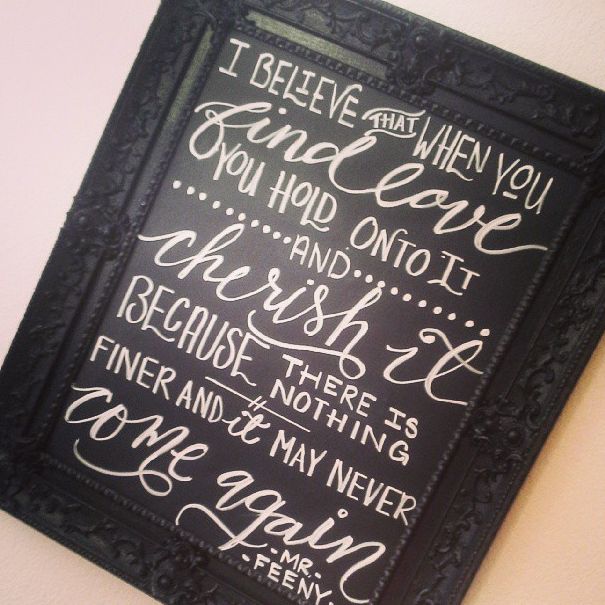 I BELIEVE THAT WHEN YOU
find love
YOU HOLD ONTO IT
AND
cherish it
BECAUSE THERE IS
NOTHING
FINER AND it MAY NEVER
come again
- MR. -
- FEENY -